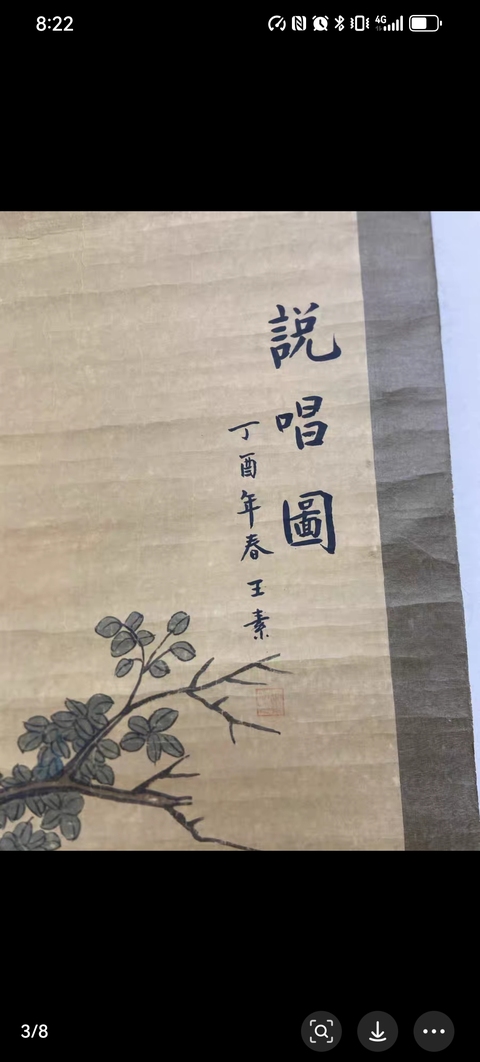 8:22
4G
說唱圖
丁酉年春王素
3/8